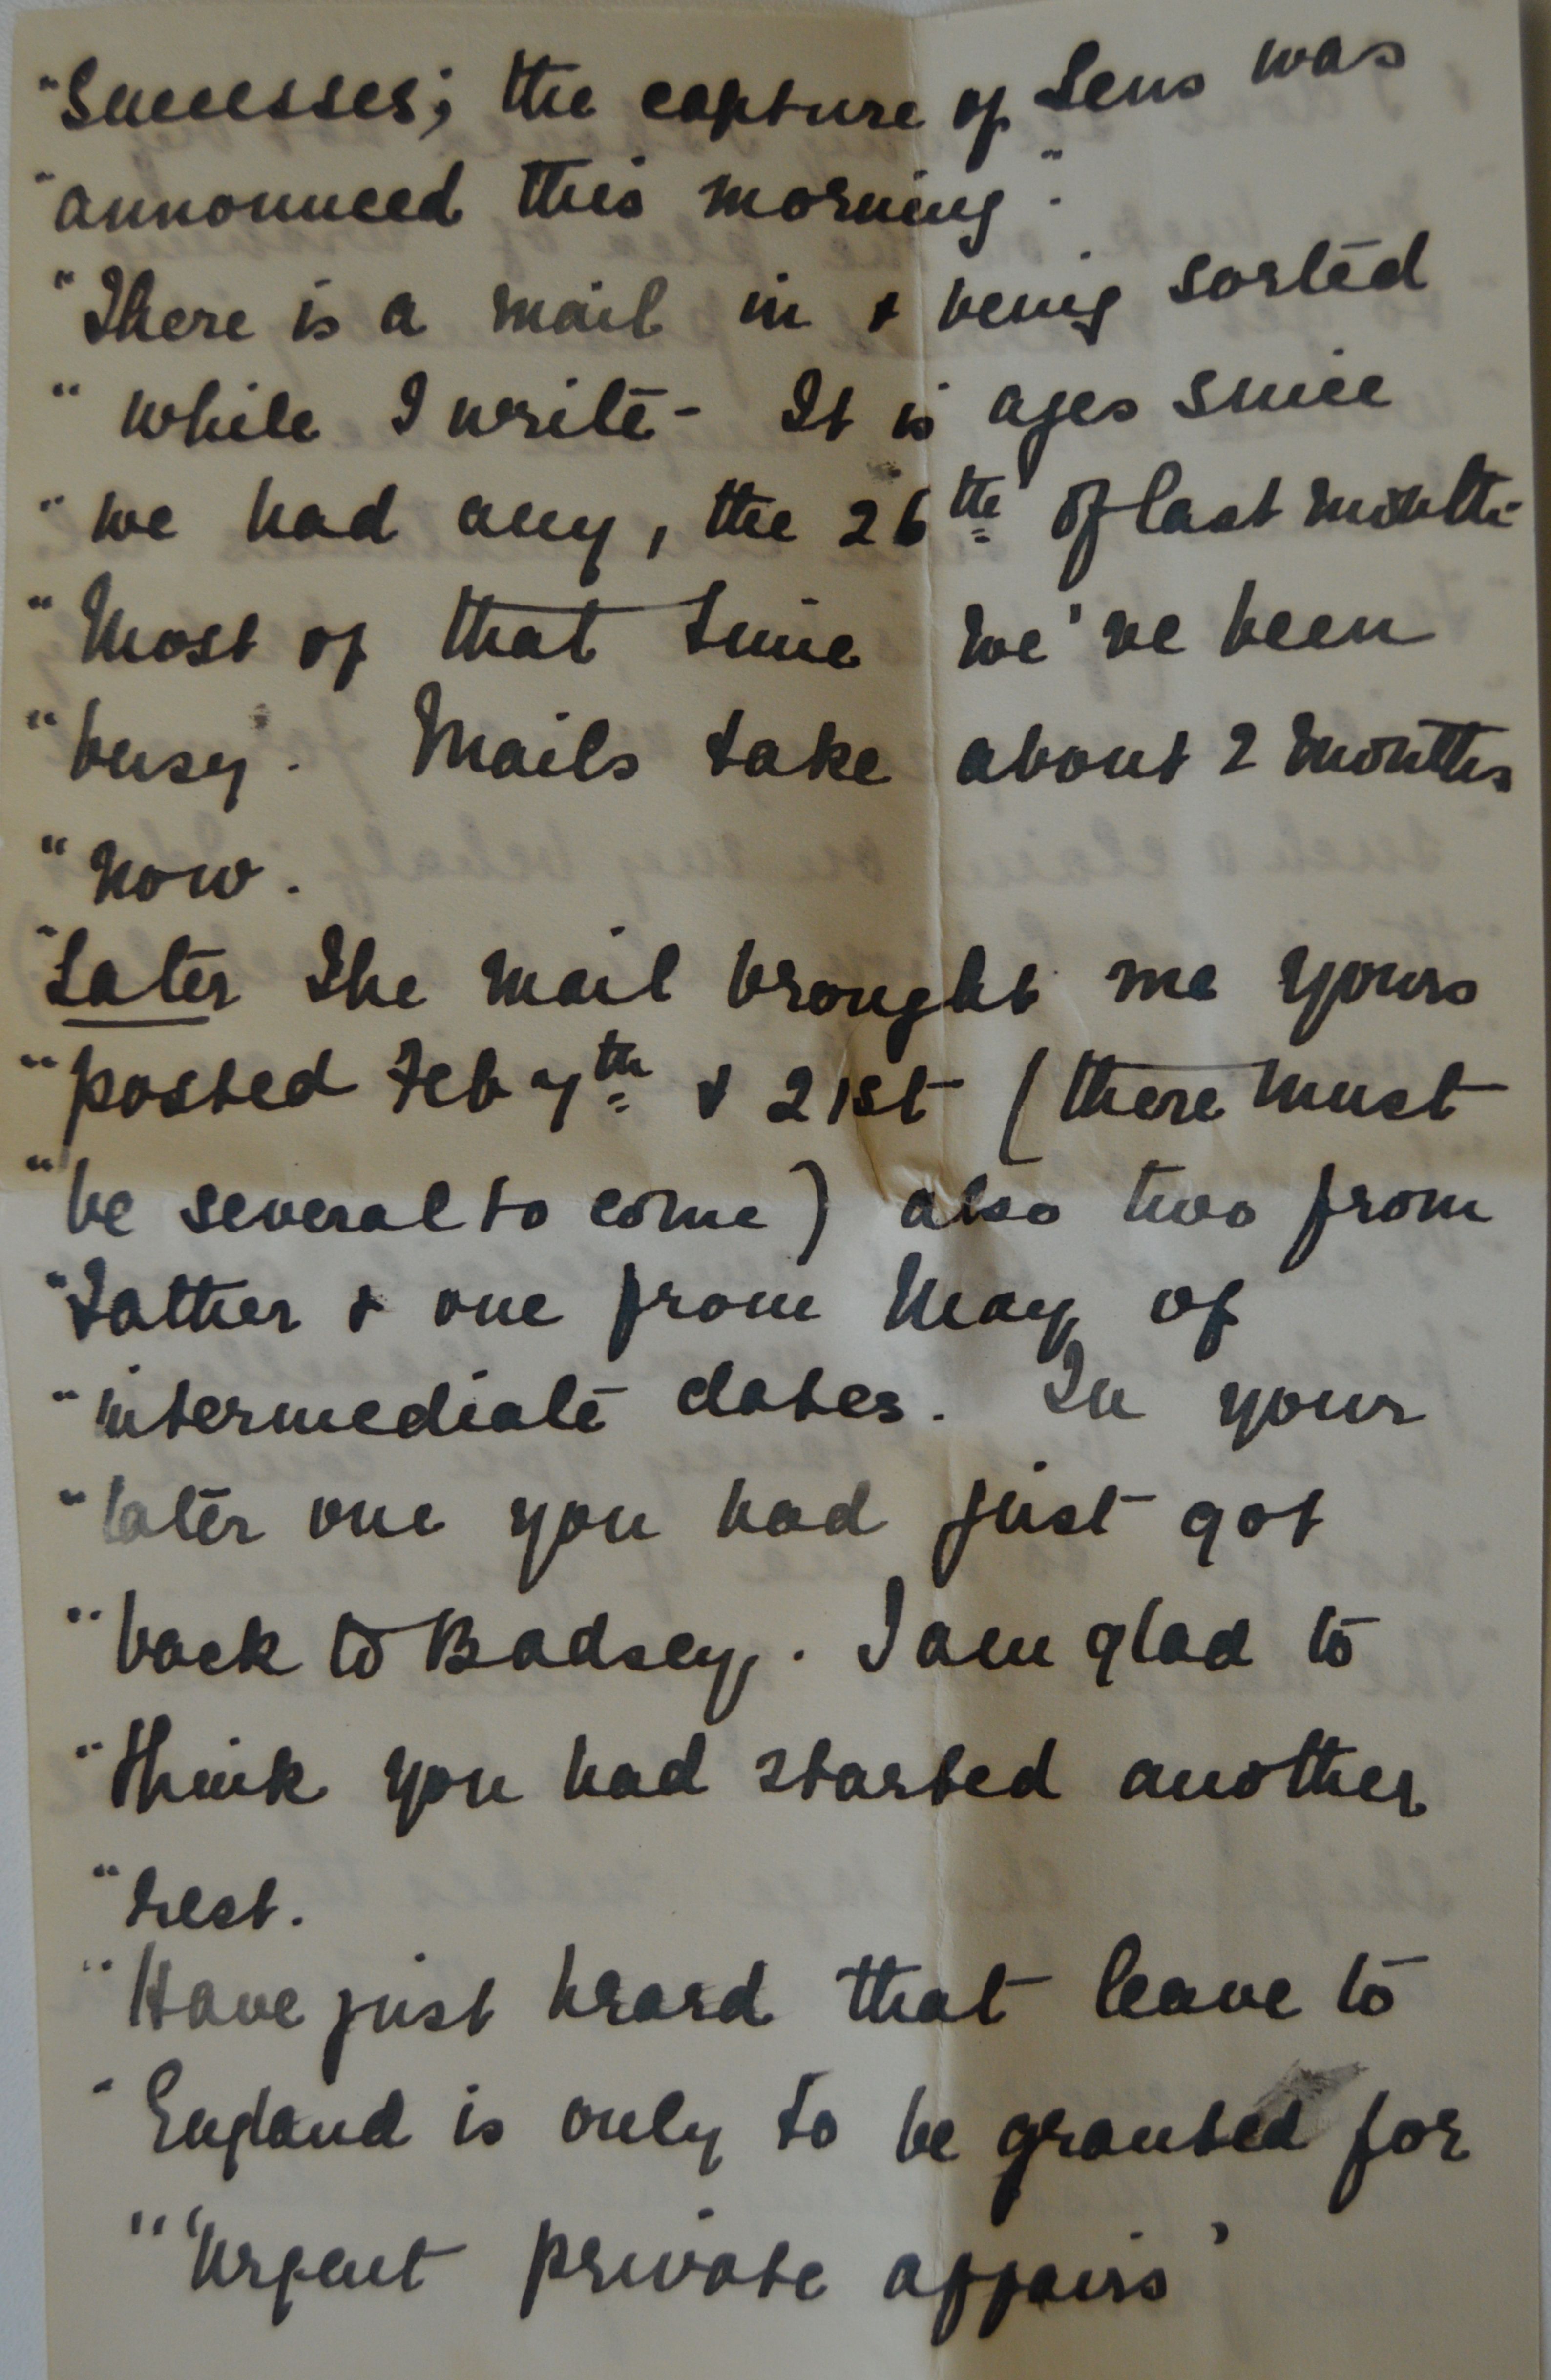 "Successes; the capture of Lens was
"announced this morning".
"There is a mail in & being sorted
"while I write - It is ages since
"we had any, the 26th of last month -
"Most of that time we've been
"busy. Mails take about 2 months
"now.
"Later The mail brought me yours
"posted Feb 7th & 21st (there must
"be several to come) also two from
"Father & one from May, of
"intermediate dates. In your
"later one you had just got
"back to Badsey. I am glad to
"think you had started another
"rest.
"Have just heard that leave to
"England is only to be granted for
"'urgent private affairs'